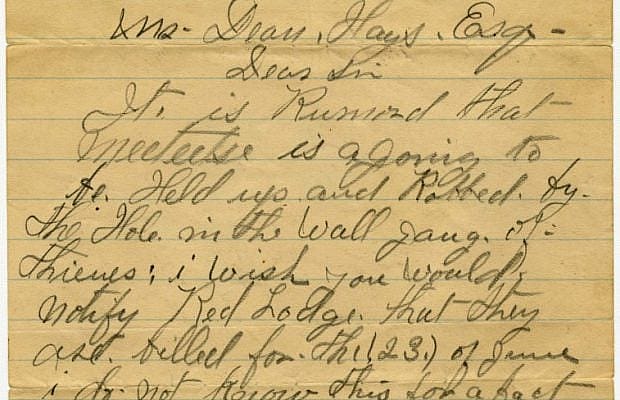 Mr. Dean. Hays. Esq -
Dear Sir
It. is Rumord that
Meeteetse is agoing to
be. Held up and Robbed. by.
the Hole. in the Wall gang. of-
thieves; i Wish you Would;
notify Red Lodge. that they
are. billed for. the (23.) of June
i do not know this for a fact